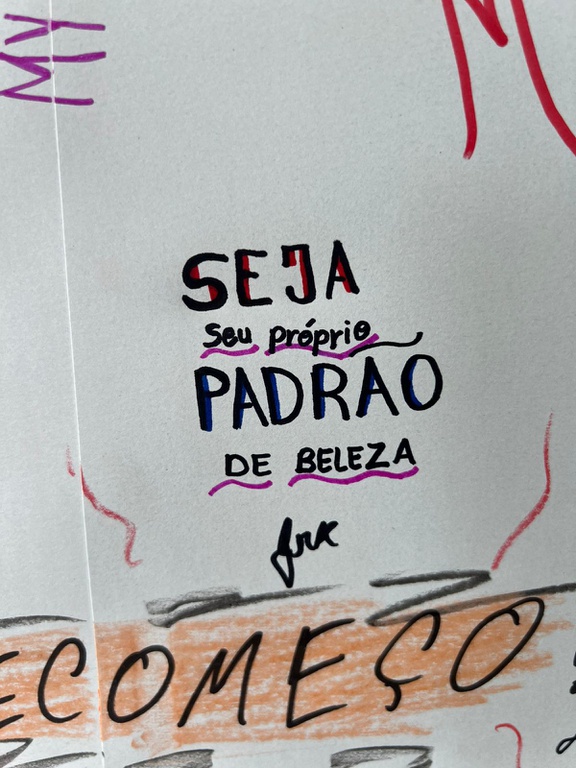 MY
SEJA
seu próprio
PADRÃO
DE BELEZA
ECOMEÇO